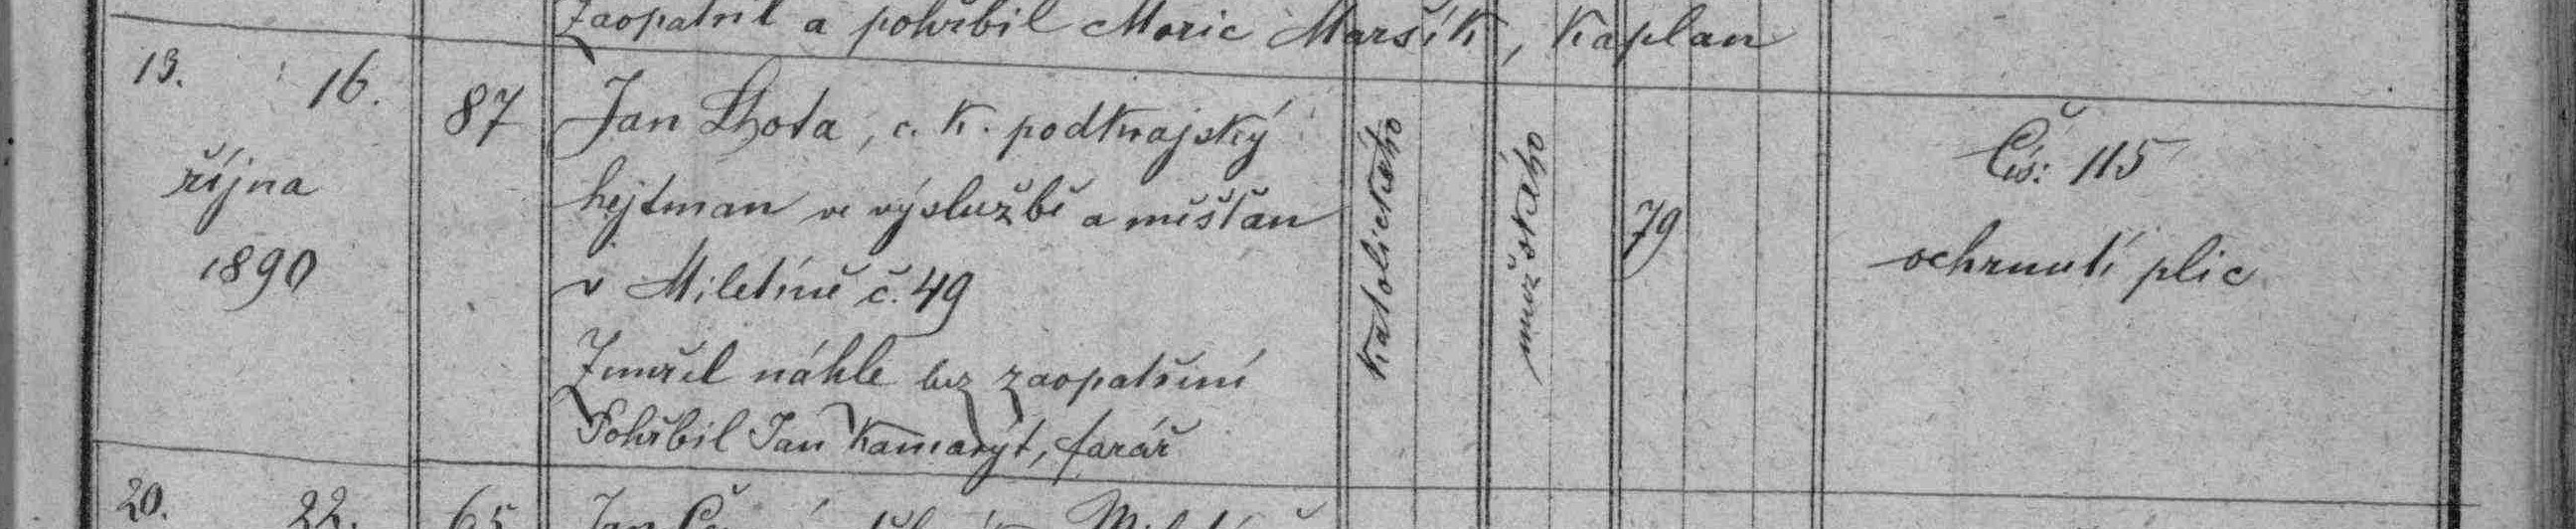 Zaopatřil a pohřbil Moric Maršík, Kaplan
13. 16.
října
1890
87
Jan Lhota, c. k. podkrajský
hejtman ve výslužbě a měšťan
v Miletíně č. 49
Zemřel náhle bez zaopatření
Pohřbil Jan Kamarýt, farář
katolického
mužského
79
Čís: 115
ochrnutí plic
20. 22.
65
Jan